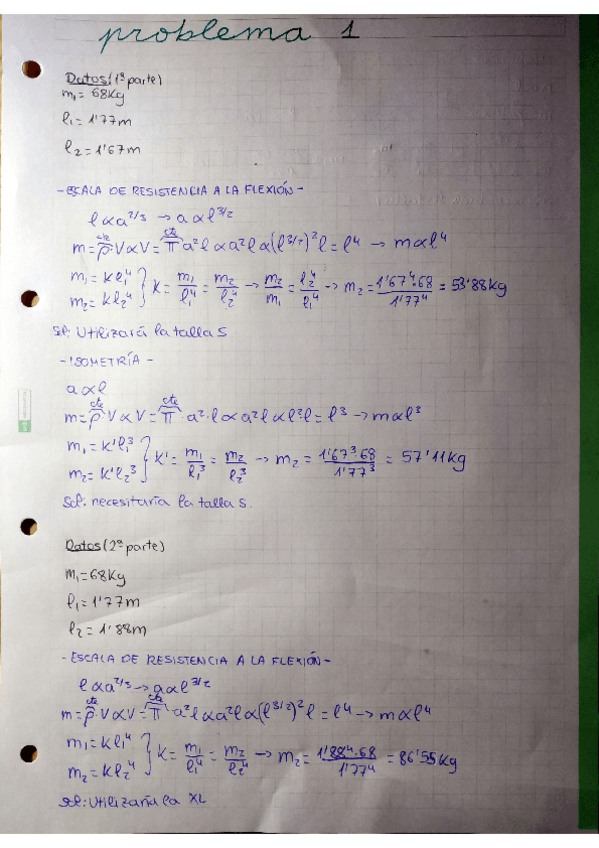 problema 1
Datos: (1ª parte)
m₁ = 68Kg
l₁ = 1'77m
l₂ = 1'67m
-ESCALA DE RESISTENCIA A LA FLEXIÓN-
l∝a^2/3 → a∝l^3/2
m = ρ·V∝V = π a²l∝a²l∝(l^3/2)²l = l⁴ → m∝l⁴
cte cte
m₁ = Kl₁⁴ } K = m₁/l₁⁴ = m₂/l₂⁴ → m₂/m₁ = l₂⁴/l₁⁴ → m₂ = 1'67⁴·68/1'77⁴ = 53'88Kg
m₂ = Kl₂⁴
Sol: Utilizará la talla S
-ISOMETRÍA-
a∝l
m = ρ·V∝V = π·a²·l∝a²l∝l²·l = l³ → m∝l³
cte cte
m₁ = K'l₁³ } K' = m₁/l₁³ = m₂/l₂³ → m₂ = 1'67³·68/1'77³ = 57'11Kg
m₂ = K'l₂³
Sol: necesitaría la talla S.
Datos (2ª parte)
m₁ = 68Kg
l₁ = 1'77m
l₂ = 1'88m
-ESCALA DE RESISTENCIA A LA FLEXIÓN-
l∝a^2/3 → a∝l^3/2
m = ρ·V∝V = π·a²l∝a²l∝(l^3/2)²l = l⁴ → m∝l⁴
cte cte
m₁ = Kl₁⁴ } K = m₁/l₁⁴ = m₂/l₂⁴ → m₂ = 1'88⁴·68/1'77⁴ = 86'55Kg
m₂ = Kl₂⁴
Sol: Utilizaría la XL